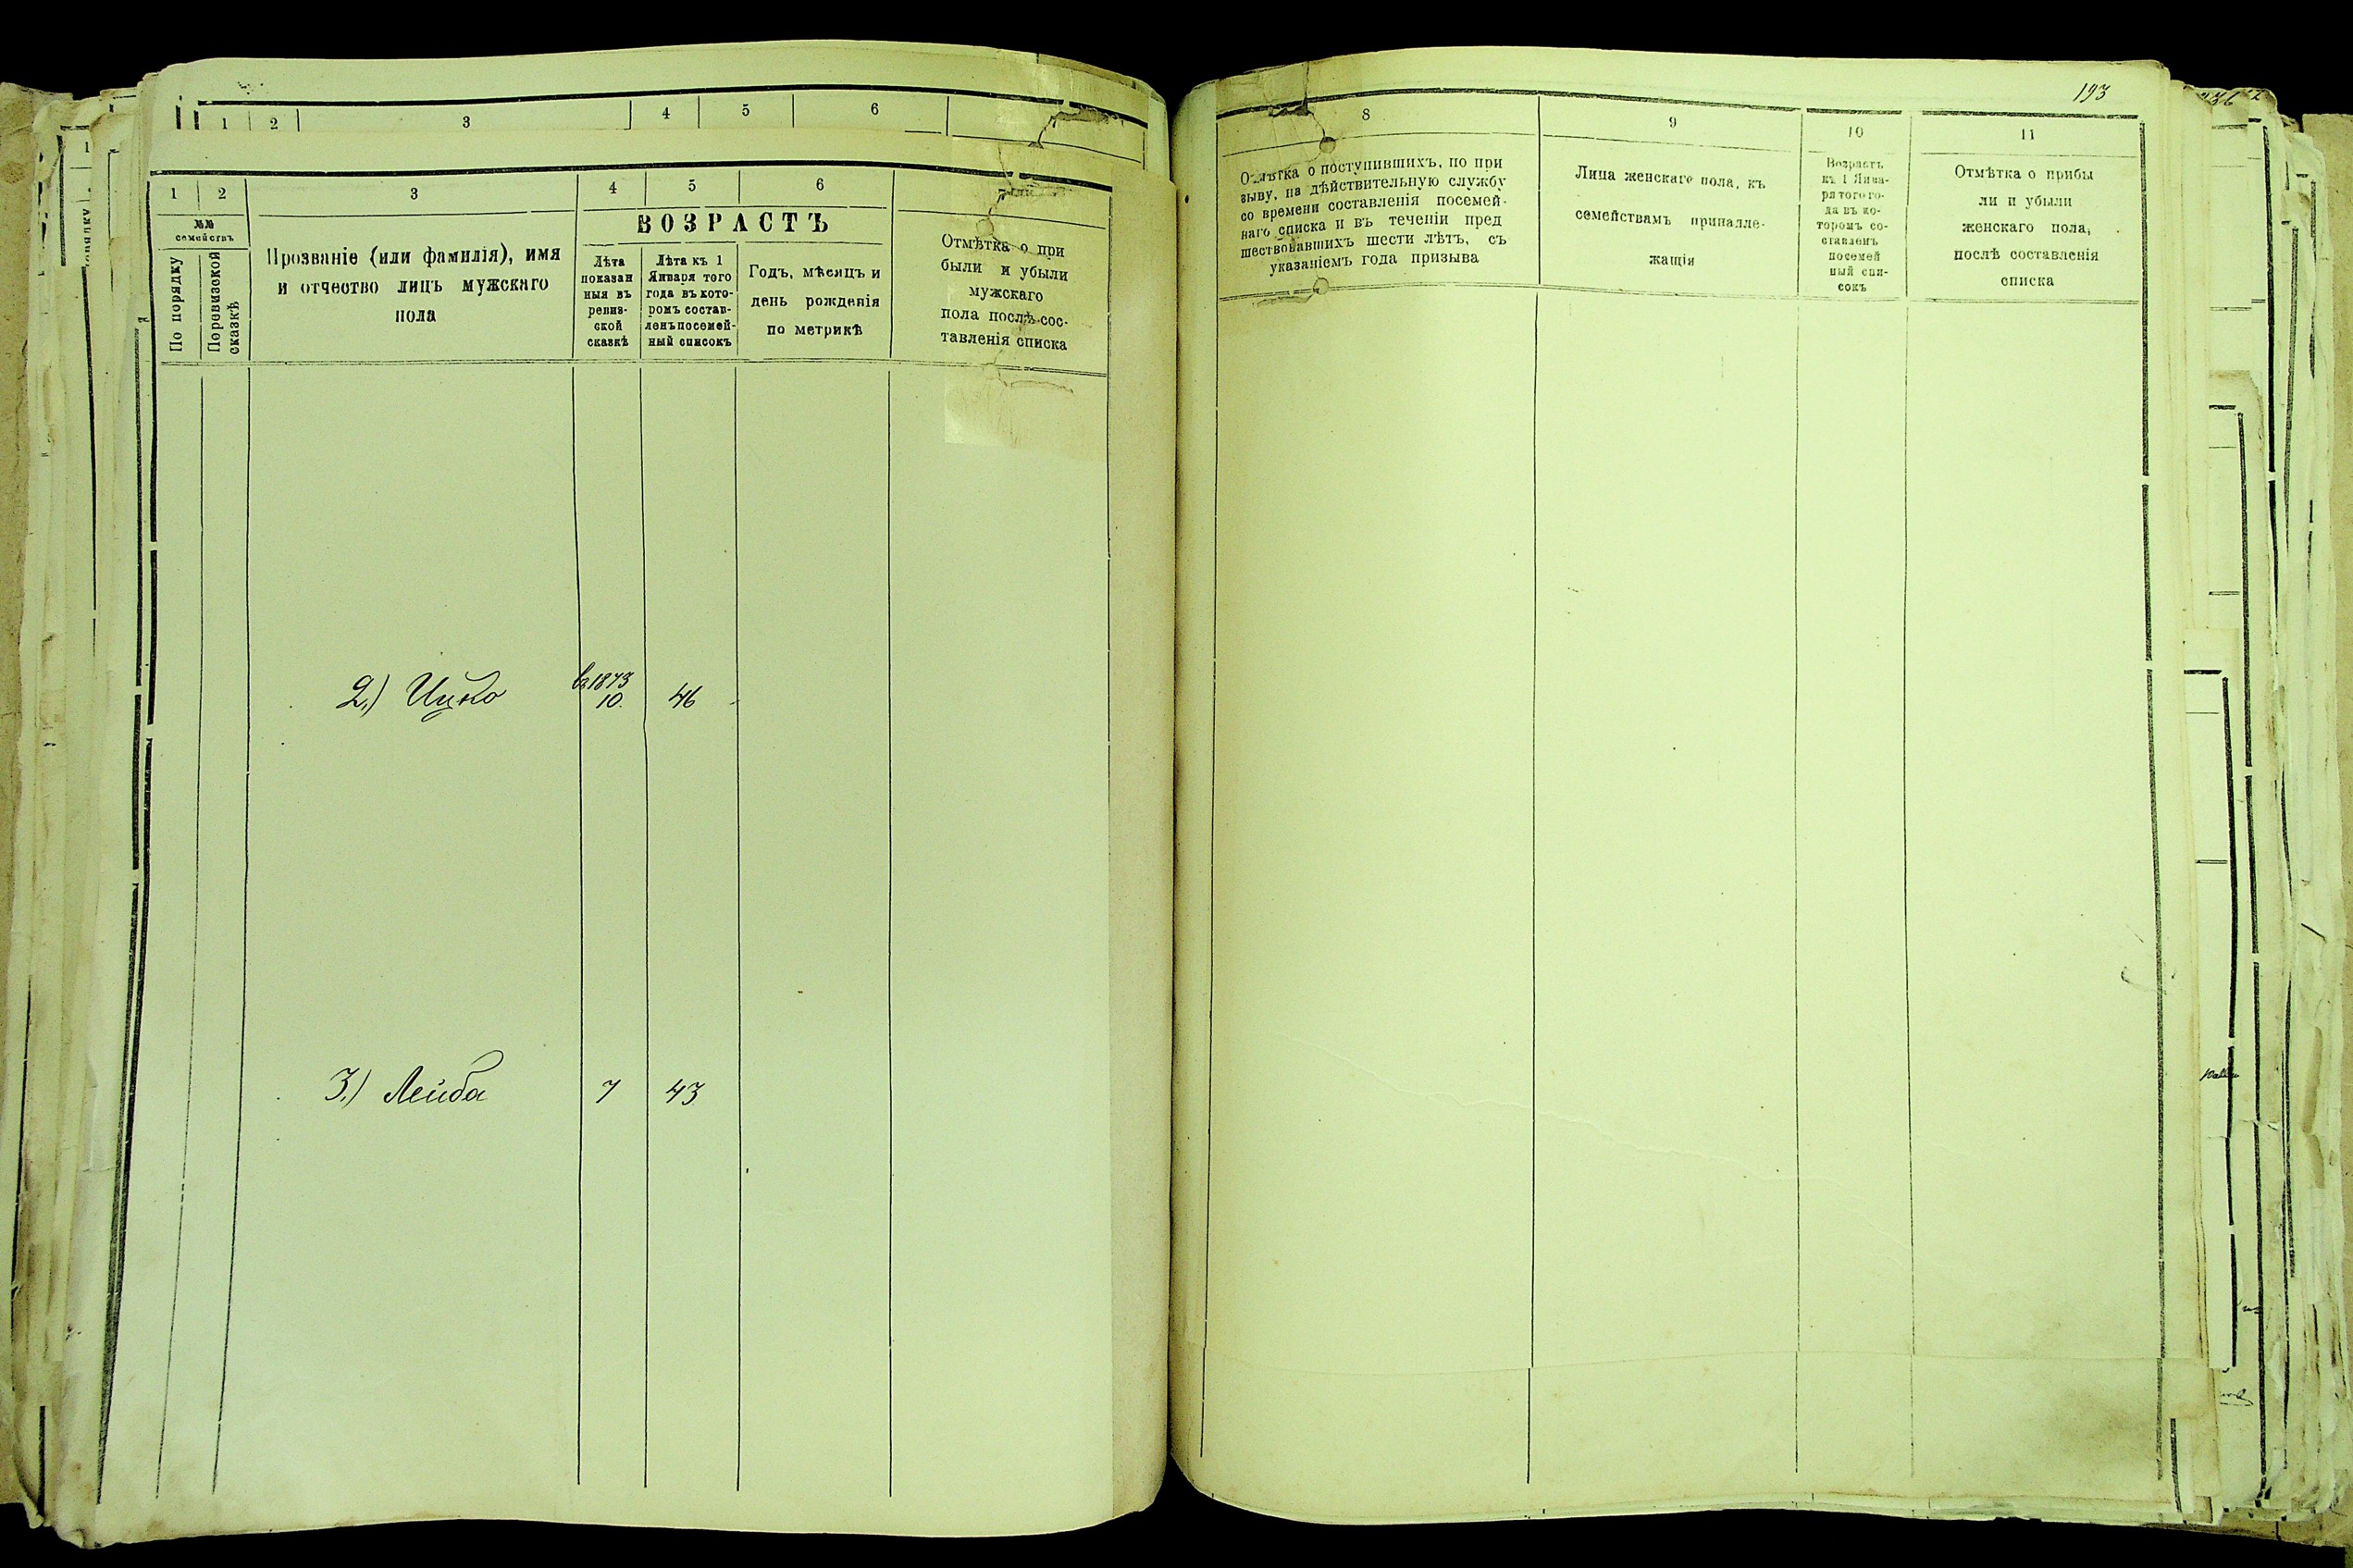 1 2 3 4 5 6
1 2 3 4 5 6
№№
семействъ
По порядку
По ревизской
сказкѣ
Прозваніе (или фамилія), имя
и отчество лицъ мужскаго
пола
ВОЗРАСТЪ
Лѣта
показан
ныя въ
ревиз-
ской
сказкѣ
Лѣта къ 1
Января того
года въ кото-
ромъ состав-
ленъ посемей-
ный списокъ
Годъ, мѣсяцъ и
день рожденія
по метрикѣ
Отмѣтка о при
были и убыли
мужскаго
пола послѣ сос-
тавленія списка
2.) Ицко
1873
10. 46
3.) Лейба 7 43
193
8 9 10 11
Отмѣтка о поступившихъ, по при
зыву, на дѣйствительную службу
со времени составленія посемей-
наго списка и въ теченіи пред
шествовавшихъ шести лѣтъ, съ
указаніемъ года призыва
Лица женскаго пола, къ
семействамъ принадле-
жащія
Возрастъ
къ 1 Янва-
ря того го-
да въ ко-
торомъ со-
ставленъ
посемей
ный спи-
сокъ
Отмѣтка о прибы
ли и убыли
женскаго пола,
послѣ составленія
списка